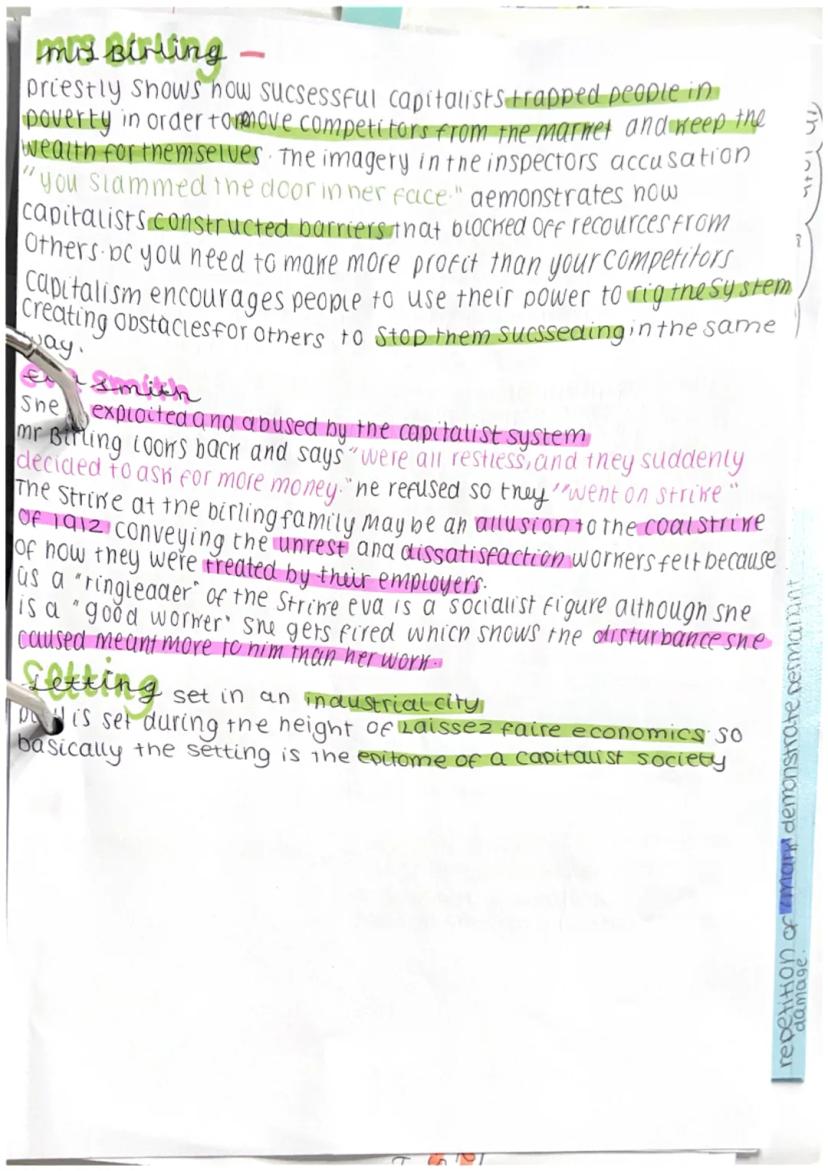 mrs Birling –
priestly shows how sucsessful capitalists trapped people in
poverty in order to move competitors from the market and keep the
wealth for themselves. The imagery in the inspectors accusation
"you slammed the door in her face." demonstrates how
capitalists constructed barriers that blocked off recources from
others. bc you need to make more profit than your competitors
capitalism encourages people to use their power to rig the system
creating obstacles for others to stop them sucsseding in the same
way.
Smith
She exploited and abused by the capitalist system
mr Birling looks back and says "were all restless, and they suddenly
decided to ask for more money." he refused so they "went on strike"
The strike at the birling family may be an allusion to the coal strike
of 1912 conveying the unrest and dissatisfaction workers felt because
of how they were treated by their employers.
as a "ringleader" of the strike eva is a socialist figure although she
is a "good worker" she gets fired which shows the disturbance she
caused meant more to him than her work.
setting set in an industrial city
is set during the height of Laissez faire economics so
basically the setting is the epitome of a capitalist society
repetition of demonstrate permanant
damage.